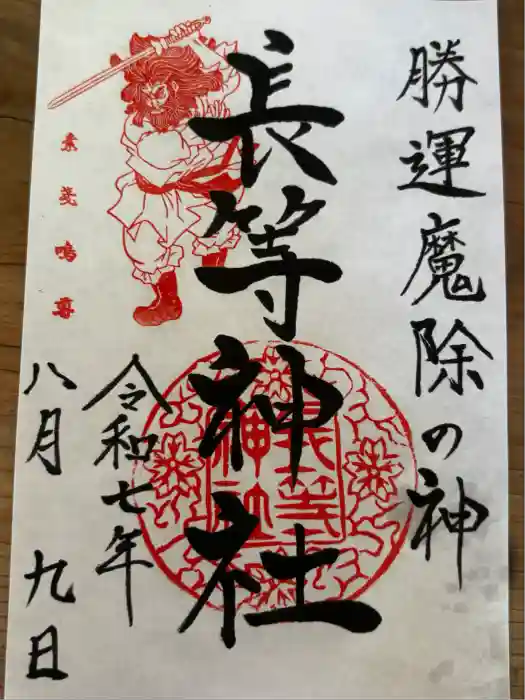 勝運魔除の神
長等神社
長等
神社
素戔嗚尊
令和七年
八月九日